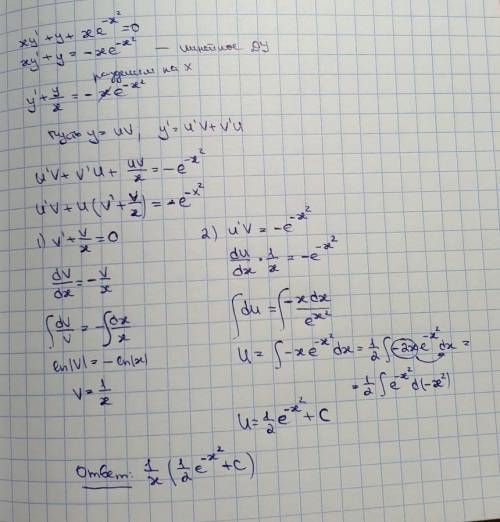 xy' + y + xe^{-x^2} = 0
xy' + y = -xe^{-x^2} — линейное ДУ
разделим на x
y' + y/x = -xe^{-x^2}
Пусть y = UV, y' = U'V + V'U
U'V + V'U + UV/x = -e^{-x^2}
U'V + U(V' + V/x) = -e^{-x^2}
1) V' + V/x = 0
dV/dx = -V/x
∫ dV/V = -∫ dx/x
ln|V| = -ln|x|
V = 1/x
2) U'V = -e^{-x^2}
dU/dx · 1/x = -e^{-x^2}
∫ dU = ∫ -x dx/e^{x^2}
U = ∫ -xe^{-x^2}dx = 1/2 ∫ (-2x)e^{-x^2}dx =
= 1/2 ∫ e^{-x^2} d(-x^2)
U = 1/2 e^{-x^2} + C
Ответ: 1/x (1/2 e^{-x^2} + C)